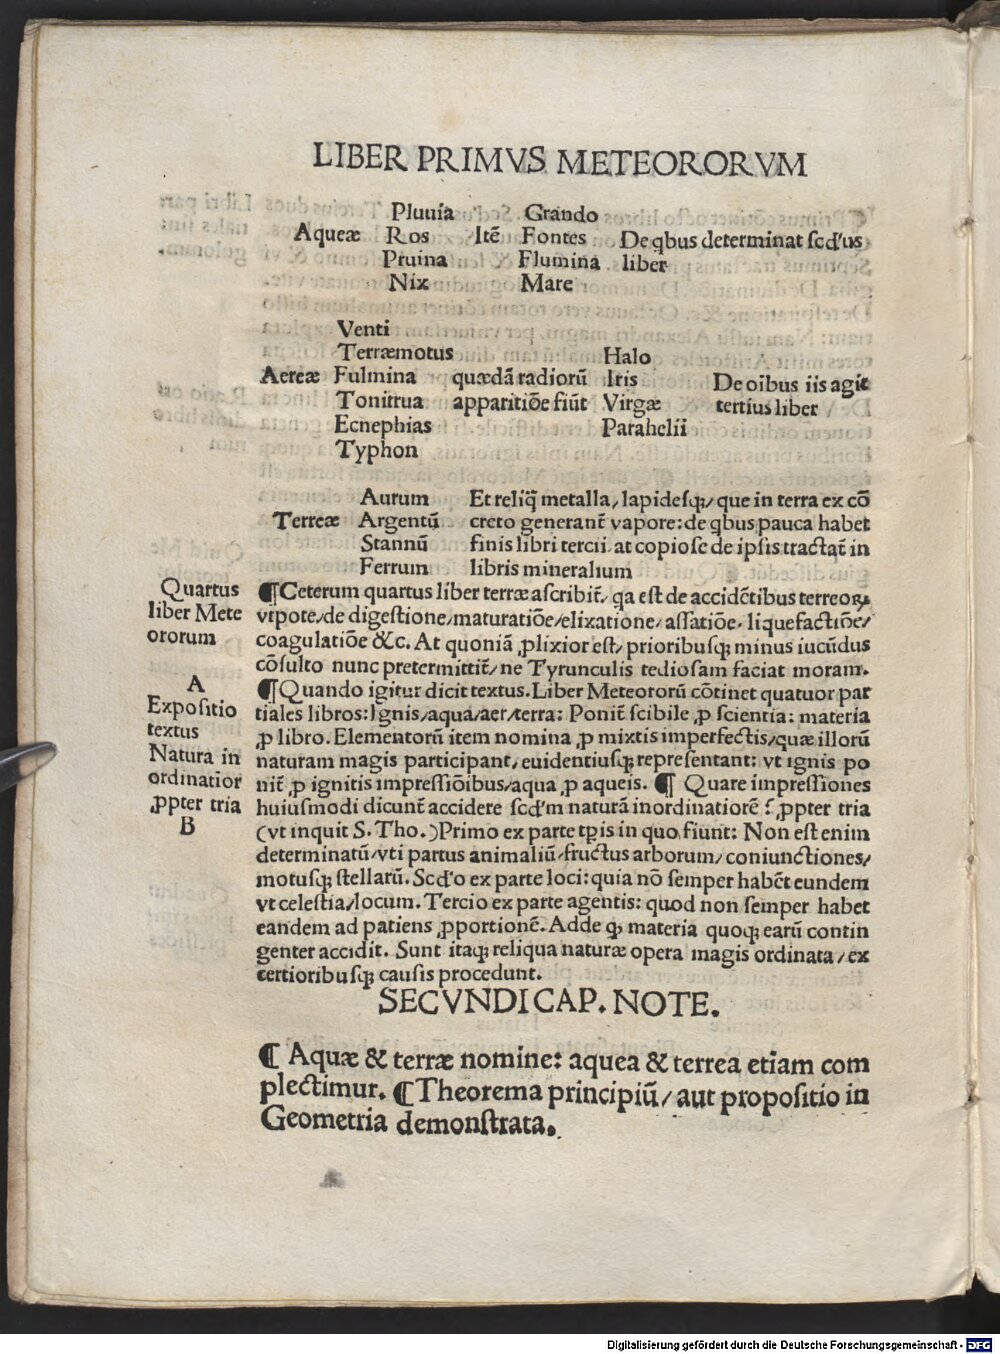 LIBER PRIMVS METEORORVM
Pluuia Grando
Aqueæ Ros Itē Fontes De qbus determinat scd'us
Pruina Flumina liber
Nix Mare
Venti
Terræmotus Halo
Aereæ Fulmina quædā radiorū Iris De oibus iis agit
Tonitrua apparitiōe fiūt Virgæ tertius liber
Ecnephias Parahelii
Typhon
Aurum Et reliq̄ metalla, lapidesq;/ que in terra ex cō
Terreæ Argentū creto generant̄ vapore: de qbus pauca habet
Stannū finis libri tercii. at copiose de ipsis tractat̄ in
Ferrum libris mineralium
Quartus
liber Mete
ororum
¶Ceterum quartus liber terræ ascribit̄/ qa est de accidētibus terreoꝝ/
vtpote/de digestione/maturatiōe/elixatione/assatiōe. liquefactiōe/
coagulatiōe &c. At quoniā ꝓlixior est/ prioribusq; minus iucūdus
cōsulto nunc pretermittit̄/ne Tyrunculis tediosam faciat moram.
A
Expositio
textus
Natura in
ordinatior
ꝓpter tria
B
¶Quando igitur dicit textus. Liber Meteororū cōtinet quatuor par
tiales libros: Ignis/aqua/aer/terra: Ponit̄ scibile ꝓ scientia: materia
ꝓ libro. Elementorū item nomina ꝓ mixtis imperfectis/quæ illorū
naturam magis participant/euidentiusq; representant: vt ignis po
nit̄ ꝓ ignitis impressiōibus/aqua ꝓ aqueis. ¶ Quare impressiones
huiusmodi dicunt̄ accidere scd'm naturā inordinatiorē ? ꝓpter tria
(vt inquit S. Tho.) Primo ex parte tp̄is in quo fiunt: Non est enim
determinatū/vti partus animaliū/fructus arborum/coniunctiones/
motusq; stellarū. Scd'o ex parte loci: quia nō semper habēt eundem
vt celestia/locum. Tercio ex parte agentis: quod non semper habet
eandem ad patiens ꝓportionē. Adde q; materia quoq; earū contin
genter accidit. Sunt itaq; reliqua naturæ opera magis ordinata/ex
certioribusq; causis procedunt.
SECVNDI CAP. NOTE.
¶ Aquæ & terræ nomine: aquea & terrea etiam com
plectimur. ¶Theorema principiū/aut propositio in
Geometria demonstrata.
Digitalisierung gefördert durch die Deutsche Forschungsgemeinschaft - DFG